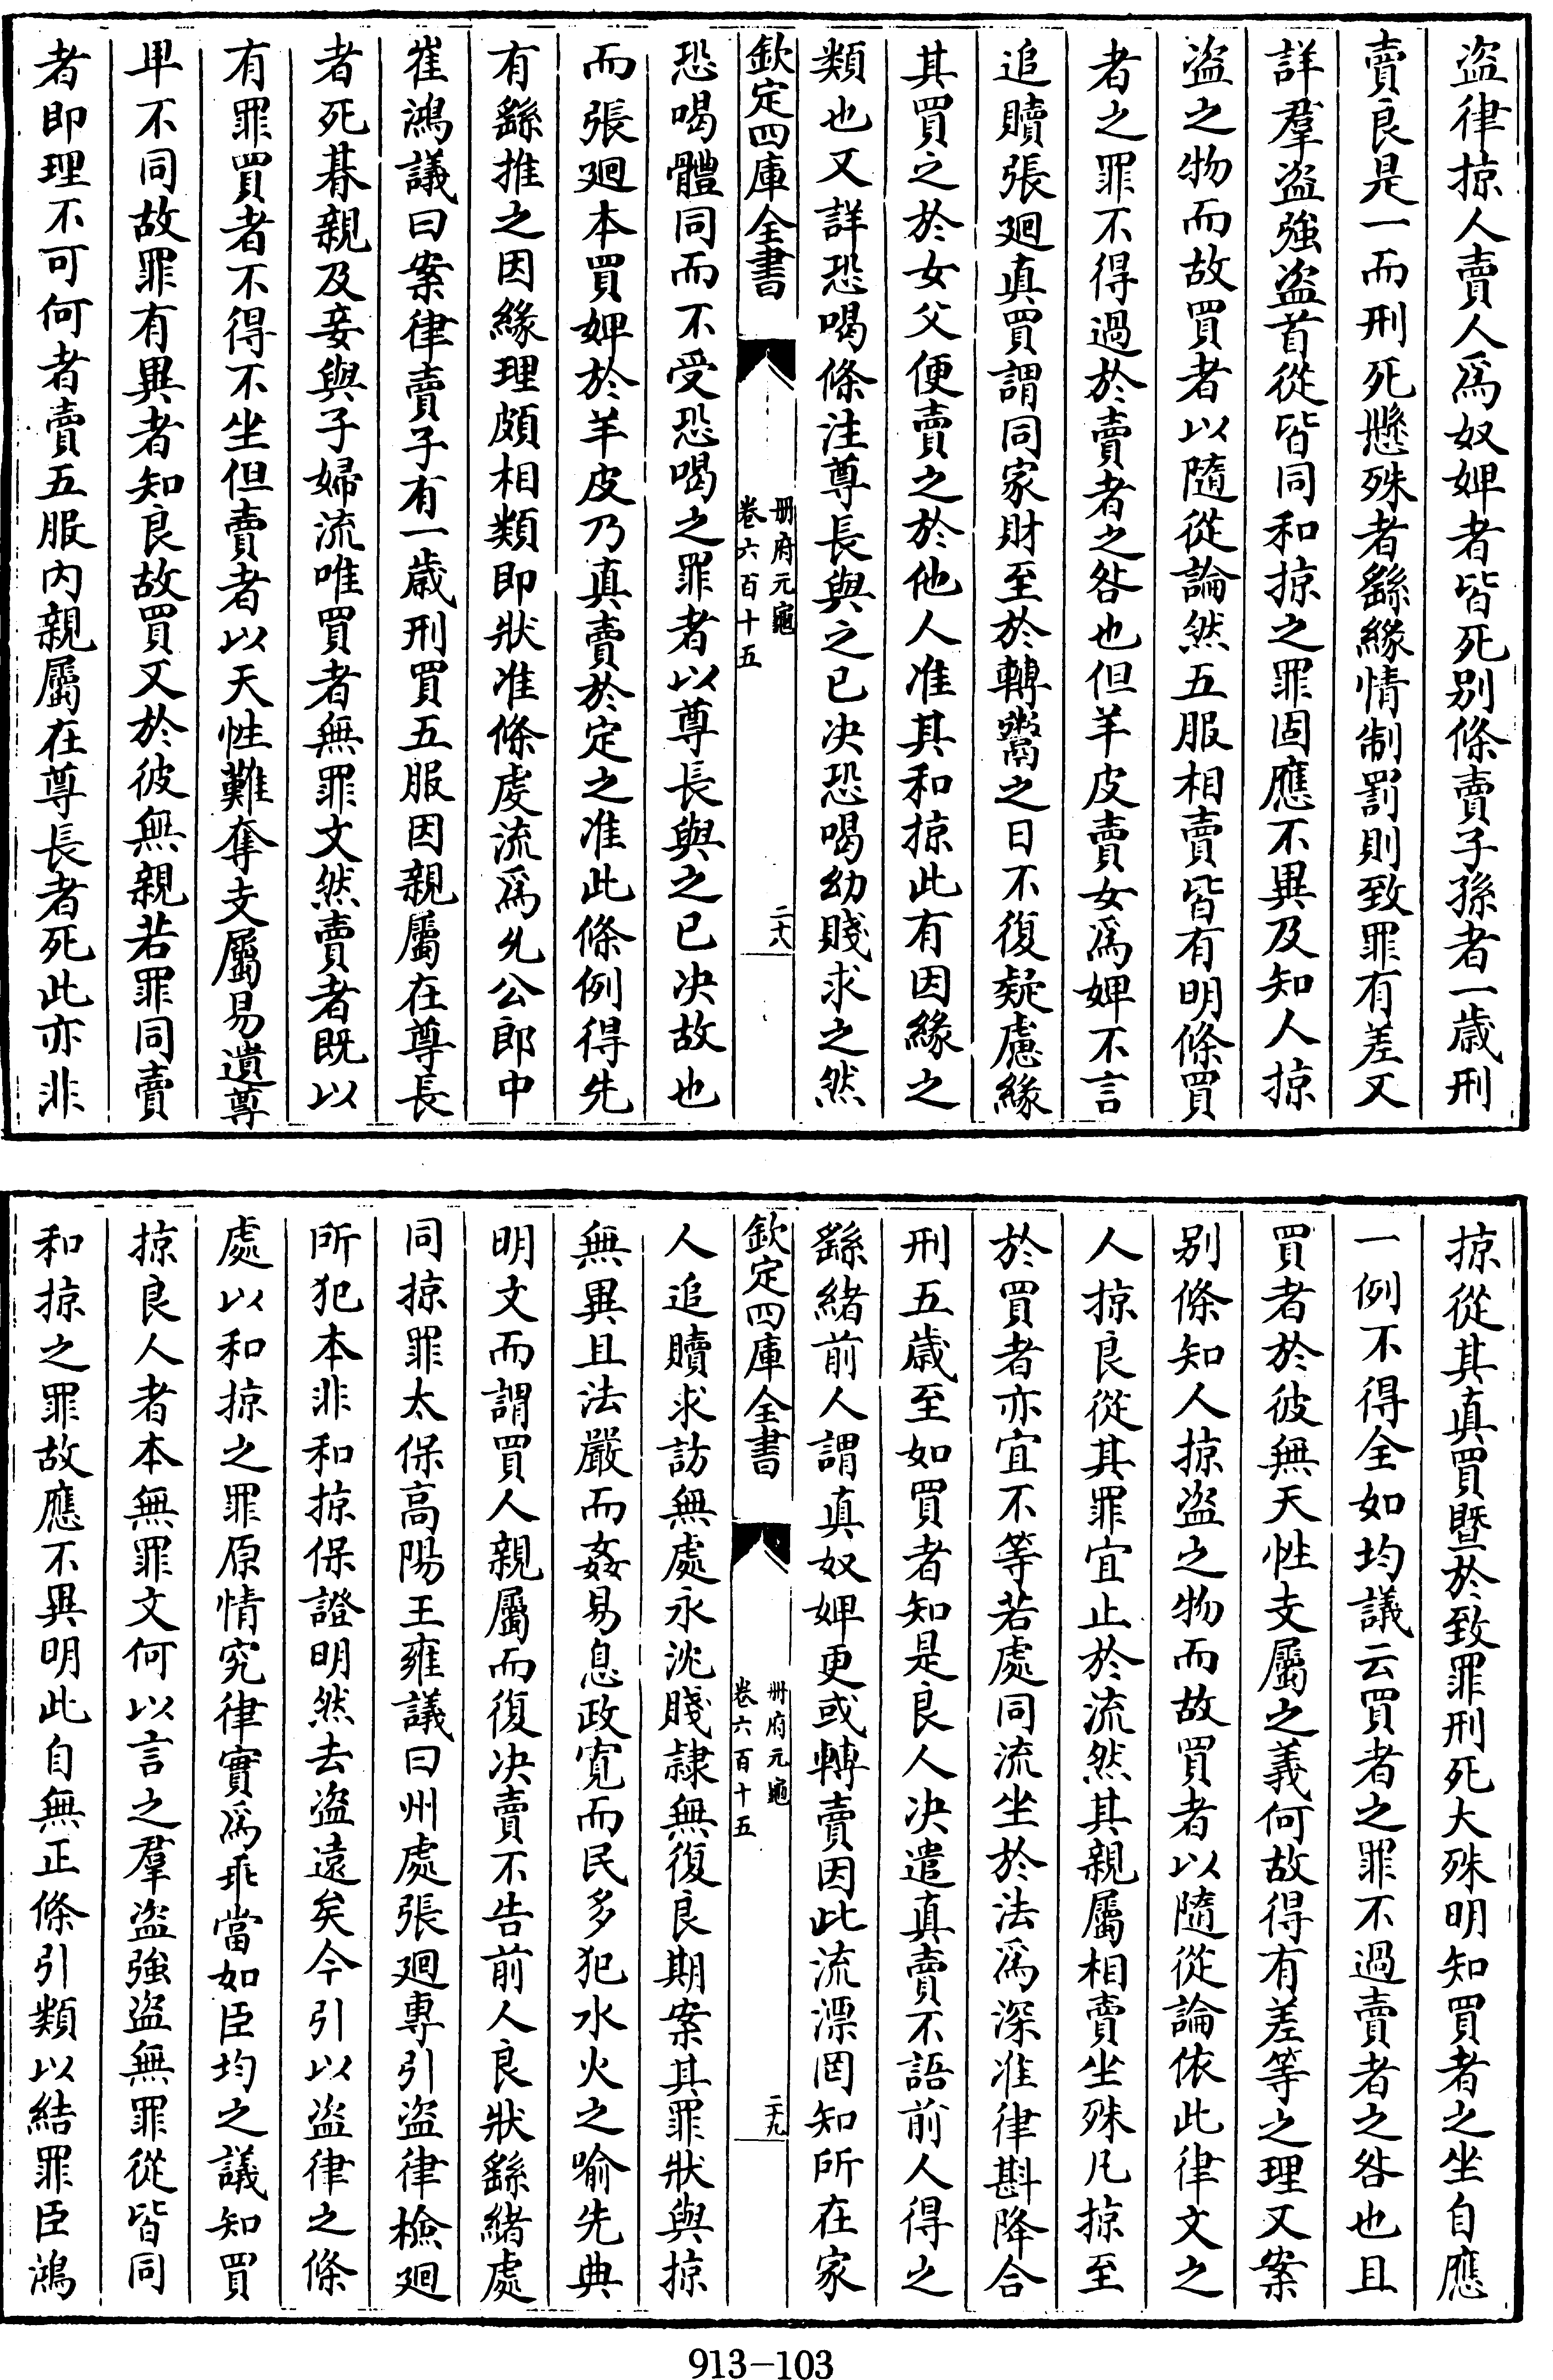 盗律掠人賣人爲奴婢者皆死别條賣子孫者一歳刑
賣良是一而刑死懸殊者繇緣情制罰則致罪有差又
詳羣盗強盗首從皆同和掠之罪固應不異及知人掠
盗之物而故買者以隨從論然五服相賣皆有明條買
者之罪不得過於賣者之咎也但羊皮賣女爲婢不言
追贖張廻真買謂同家財至於轉鬻之日不復疑慮緣
其買之於女父便賣之於他人准其和掠此有因緣之
類也又詳恐喝條注尊長與之已决恐喝幼賤求之然
欽定四庫全書
冊府元龜
卷六百十五
二十八
恐喝體同而不受恐喝之罪者以尊長與之已决故也
而張廻本買婢於羊皮乃真賣於定之准此條例得先
有繇推之因緣理頗相類即狀准條處流爲允公郎中
崔鴻議曰案律賣子有一歳刑買五服因親屬在尊長
者死朞親及妾與子婦流唯買者無罪文然賣者既以
有罪買者不得不坐但賣者以天性難奪支屬易遺尊
卑不同故罪有異者知良故買又於彼無親若罪同賣
者即理不可何者賣五服内親屬在尊長者死此亦非
掠從其真買暨於致罪刑死大殊明知買者之坐自應
一例不得全如均議云買者之罪不過賣者之咎也且
買者於彼無天性支屬之義何故得有差等之理又案
别條知人掠盗之物而故買者以隨從論依此律文之
人掠良從其罪宜止於流然其親屬相賣坐殊凡掠至
於買者亦宜不等若處同流坐於法爲深准律斟降合
刑五歳至如買者知是良人决遣真賣不語前人得之
繇緒前人謂真奴婢更或轉賣因此流漂罔知所在家
欽定四庫全書
冊府元龜
卷六百十五
二十九
人追贖求訪無處永沈賤隷無復良期案其罪狀與掠
無異且法嚴而姦易息政寛而民多犯水火之喻先典
明文而謂買人親屬而復决賣不告前人良狀繇緒處
同掠罪太保高陽王雍議曰州處張廻專引盗律檢廻
所犯本非和掠保證明然去盗遠矣今引以盗律之條
處以和掠之罪原情究律實爲乖當如臣均之議知買
掠良人者本無罪文何以言之羣盗強盗無罪從皆同
和掠之罪故應不異明此自無正條引類以結罪臣鴻
913-103